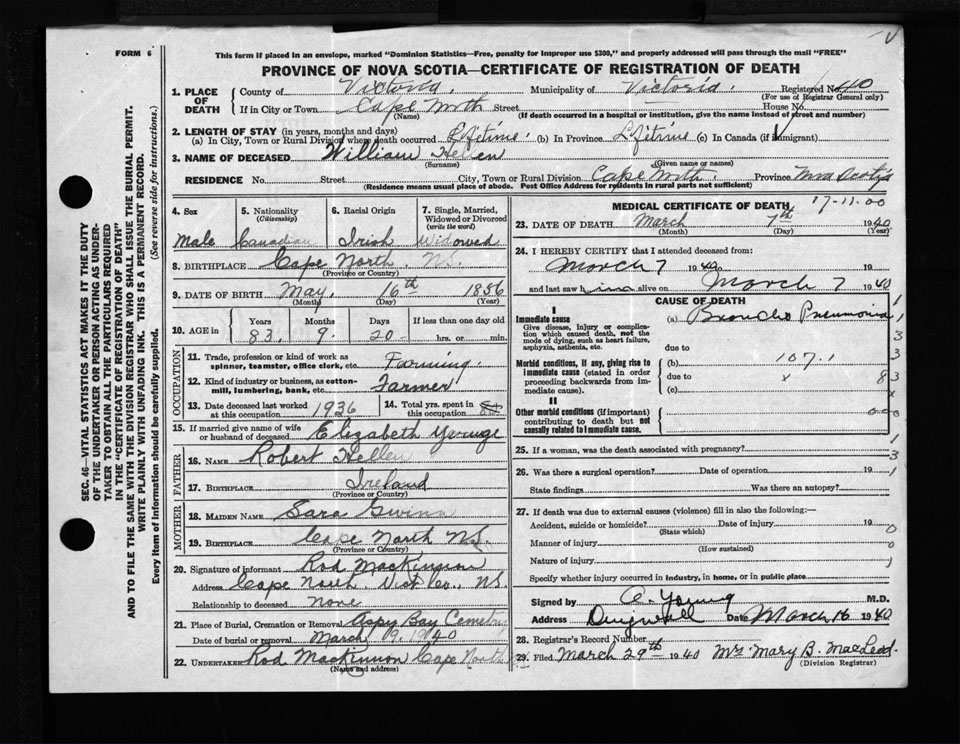 FORM 6
This form if placed in an envelope, marked "Dominion Statistics—Free, penalty for improper use $300," and properly addressed will pass through the mail "FREE"
PROVINCE OF NOVA SCOTIA—CERTIFICATE OF REGISTRATION OF DEATH
1. PLACE OF DEATH
County of Victoria. Municipality of Victoria. Registered No. 40
(For use of Registrar General only)
If in City or Town Cape North Street House No.
(Name) (If death occurred in a hospital or institution, give the name instead of street and number)
2. LENGTH OF STAY (in years, months and days)
(a) In City, Town or Rural Division where death occurred Lifetime. (b) In Province Lifetime (c) In Canada (if immigrant)
3. NAME OF DECEASED William Hellen
(Surname) (Given name or names)
RESIDENCE No. Street City, Town or Rural Division Cape North. Province Nova Scotia
(Residence means usual place of abode. Post Office Address for residents in rural parts not sufficient)
4. Sex 5. Nationality (Citizenship) 6. Racial Origin 7. Single, Married, Widowed or Divorced (write the word)
Male Canadian Irish Widowed
8. BIRTHPLACE Cape North. N.S.
(Province or Country)
9. DATE OF BIRTH May. 16th 1856
(Month) (Day) (Year)
10. AGE in Years Months Days If less than one day old
83. 9. 20 hrs. or min.
OCCUPATION
11. Trade, profession or kind of work as spinner, teamster, office clerk, etc. Farming.
12. Kind of industry or business, as cotton-mill, lumbering, bank, etc. Farmer
13. Date deceased last worked at this occupation 1936 14. Total yrs. spent in this occupation
15. If married give name of wife or husband of deceased Elizabeth Younge
FATHER
16. Name Robert Hellen
17. Birthplace Ireland
(Province or Country)
MOTHER
18. Maiden Name Sara Gwinn
19. Birthplace Cape North N.S.
(Province or Country)
20. Signature of informant Rod MacKinnon
Address Cape North. Vict Co., N.S.
Relationship to deceased None
21. Place of Burial, Cremation or Removal Aspy Bay Cemetry
Date of burial or removal March 9. 1940
22. Undertaker Rod MacKinnon Cape North
(Name and address)
MEDICAL CERTIFICATE OF DEATH 17-11-00
23. DATE OF DEATH March 7th 1940
(Month) (Day) (Year)
24. I HEREBY CERTIFY that I attended deceased from:
March 7 1940 19
and last saw him alive on March 7 1940
CAUSE OF DEATH
I
Immediate cause (a) Broncho Pneumonia
Give disease, injury or complication which caused death, not the mode of dying, such as heart failure, asphyxia, asthenia, etc. due to
Morbid conditions, if any, giving rise to immediate cause (stated in order proceeding backwards from immediate cause). (b) 107.1
due to
(c)
II
Other morbid conditions (if important) contributing to death but not causally related to immediate cause.
25. If a woman, was the death associated with pregnancy?
26. Was there a surgical operation? Date of operation 19
State findings Was there an autopsy?
27. If death was due to external causes (violence) fill in also the following:—
Accident, suicide or homicide? Date of injury 19
(State which)
Manner of injury
(How sustained)
Nature of injury
Specify whether injury occurred in industry, in home, or in public place
Signed by C. Young M.D.
Address Date March 16 1940
28. Registrar's Record Number
29. Filed March 29th 1940 Mrs Mary B. MacLeod.
(Division Registrar)
SEC. 46—VITAL STATISTICS ACT MAKES IT THE DUTY
OF THE UNDERTAKER OR PERSON ACTING AS UNDER-
TAKER TO OBTAIN ALL THE PARTICULARS REQUIRED
IN THE "CERTIFICATE OF REGISTRATION OF DEATH"
AND TO FILE THE SAME WITH THE DIVISION REGISTRAR WHO SHALL ISSUE THE BURIAL PERMIT.
WRITE PLAINLY WITH UNFADING INK. THIS IS A PERMANENT RECORD.
Every item of information should be carefully supplied. (See reverse side for instructions.)